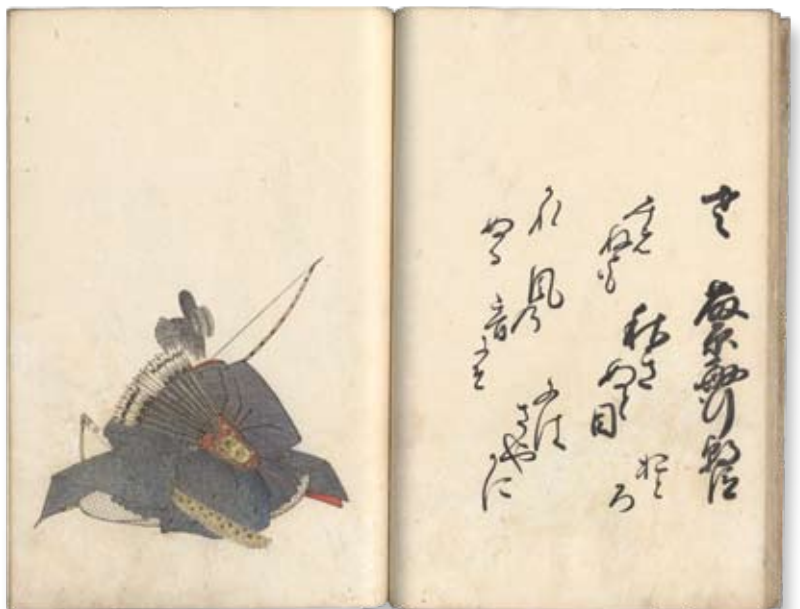 藤原敏行朝臣
秋き
ぬと目
には
さやかに
みえ
ねとも
風の
音にそ
おと
ろ
かれ
ぬる